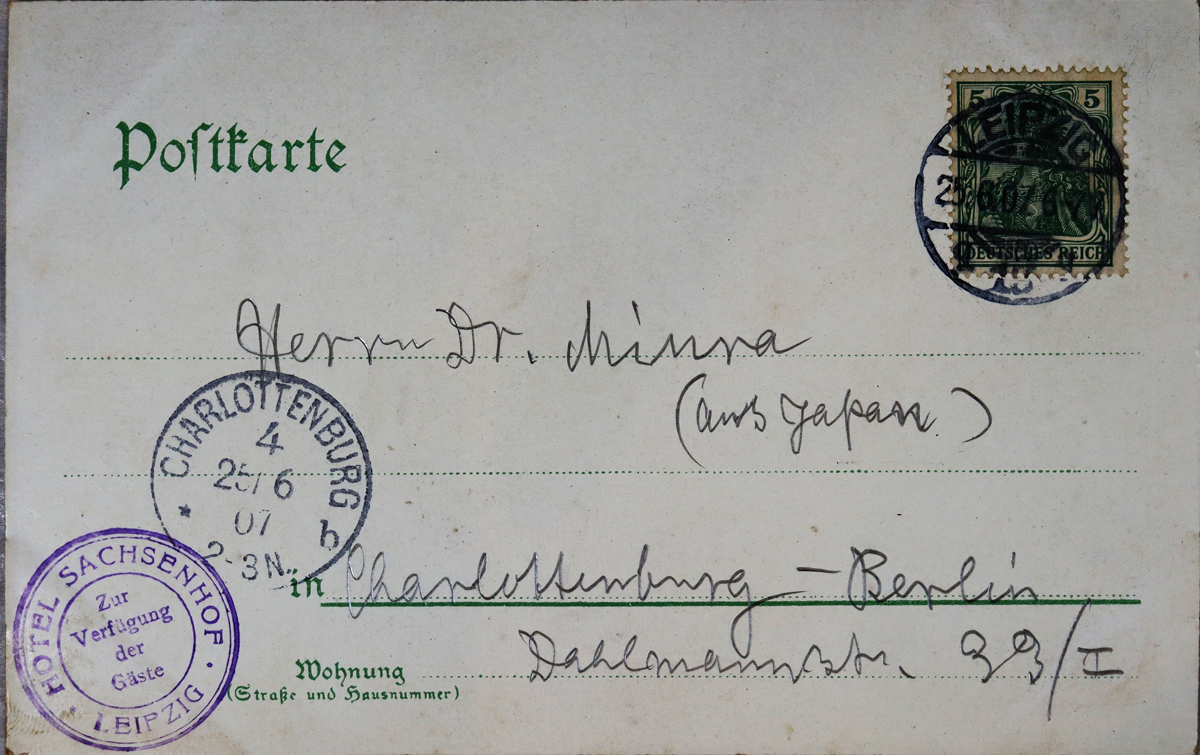 Postkarte
5 5
DEUTSCHES REICH
LEIPZIG
25.6.07
Herrn Dr. Miura
(aus Japan.)
CHARLOTTENBURG
4
25/6
07
2-3N.
* b
in Charlottenburg – Berlin
Wohnung
(Straße und Hausnummer)
Dahlmannstr. 33/I
HOTEL SACHSENHOF
Zur
Verfügung
der
Gäste
LEIPZIG